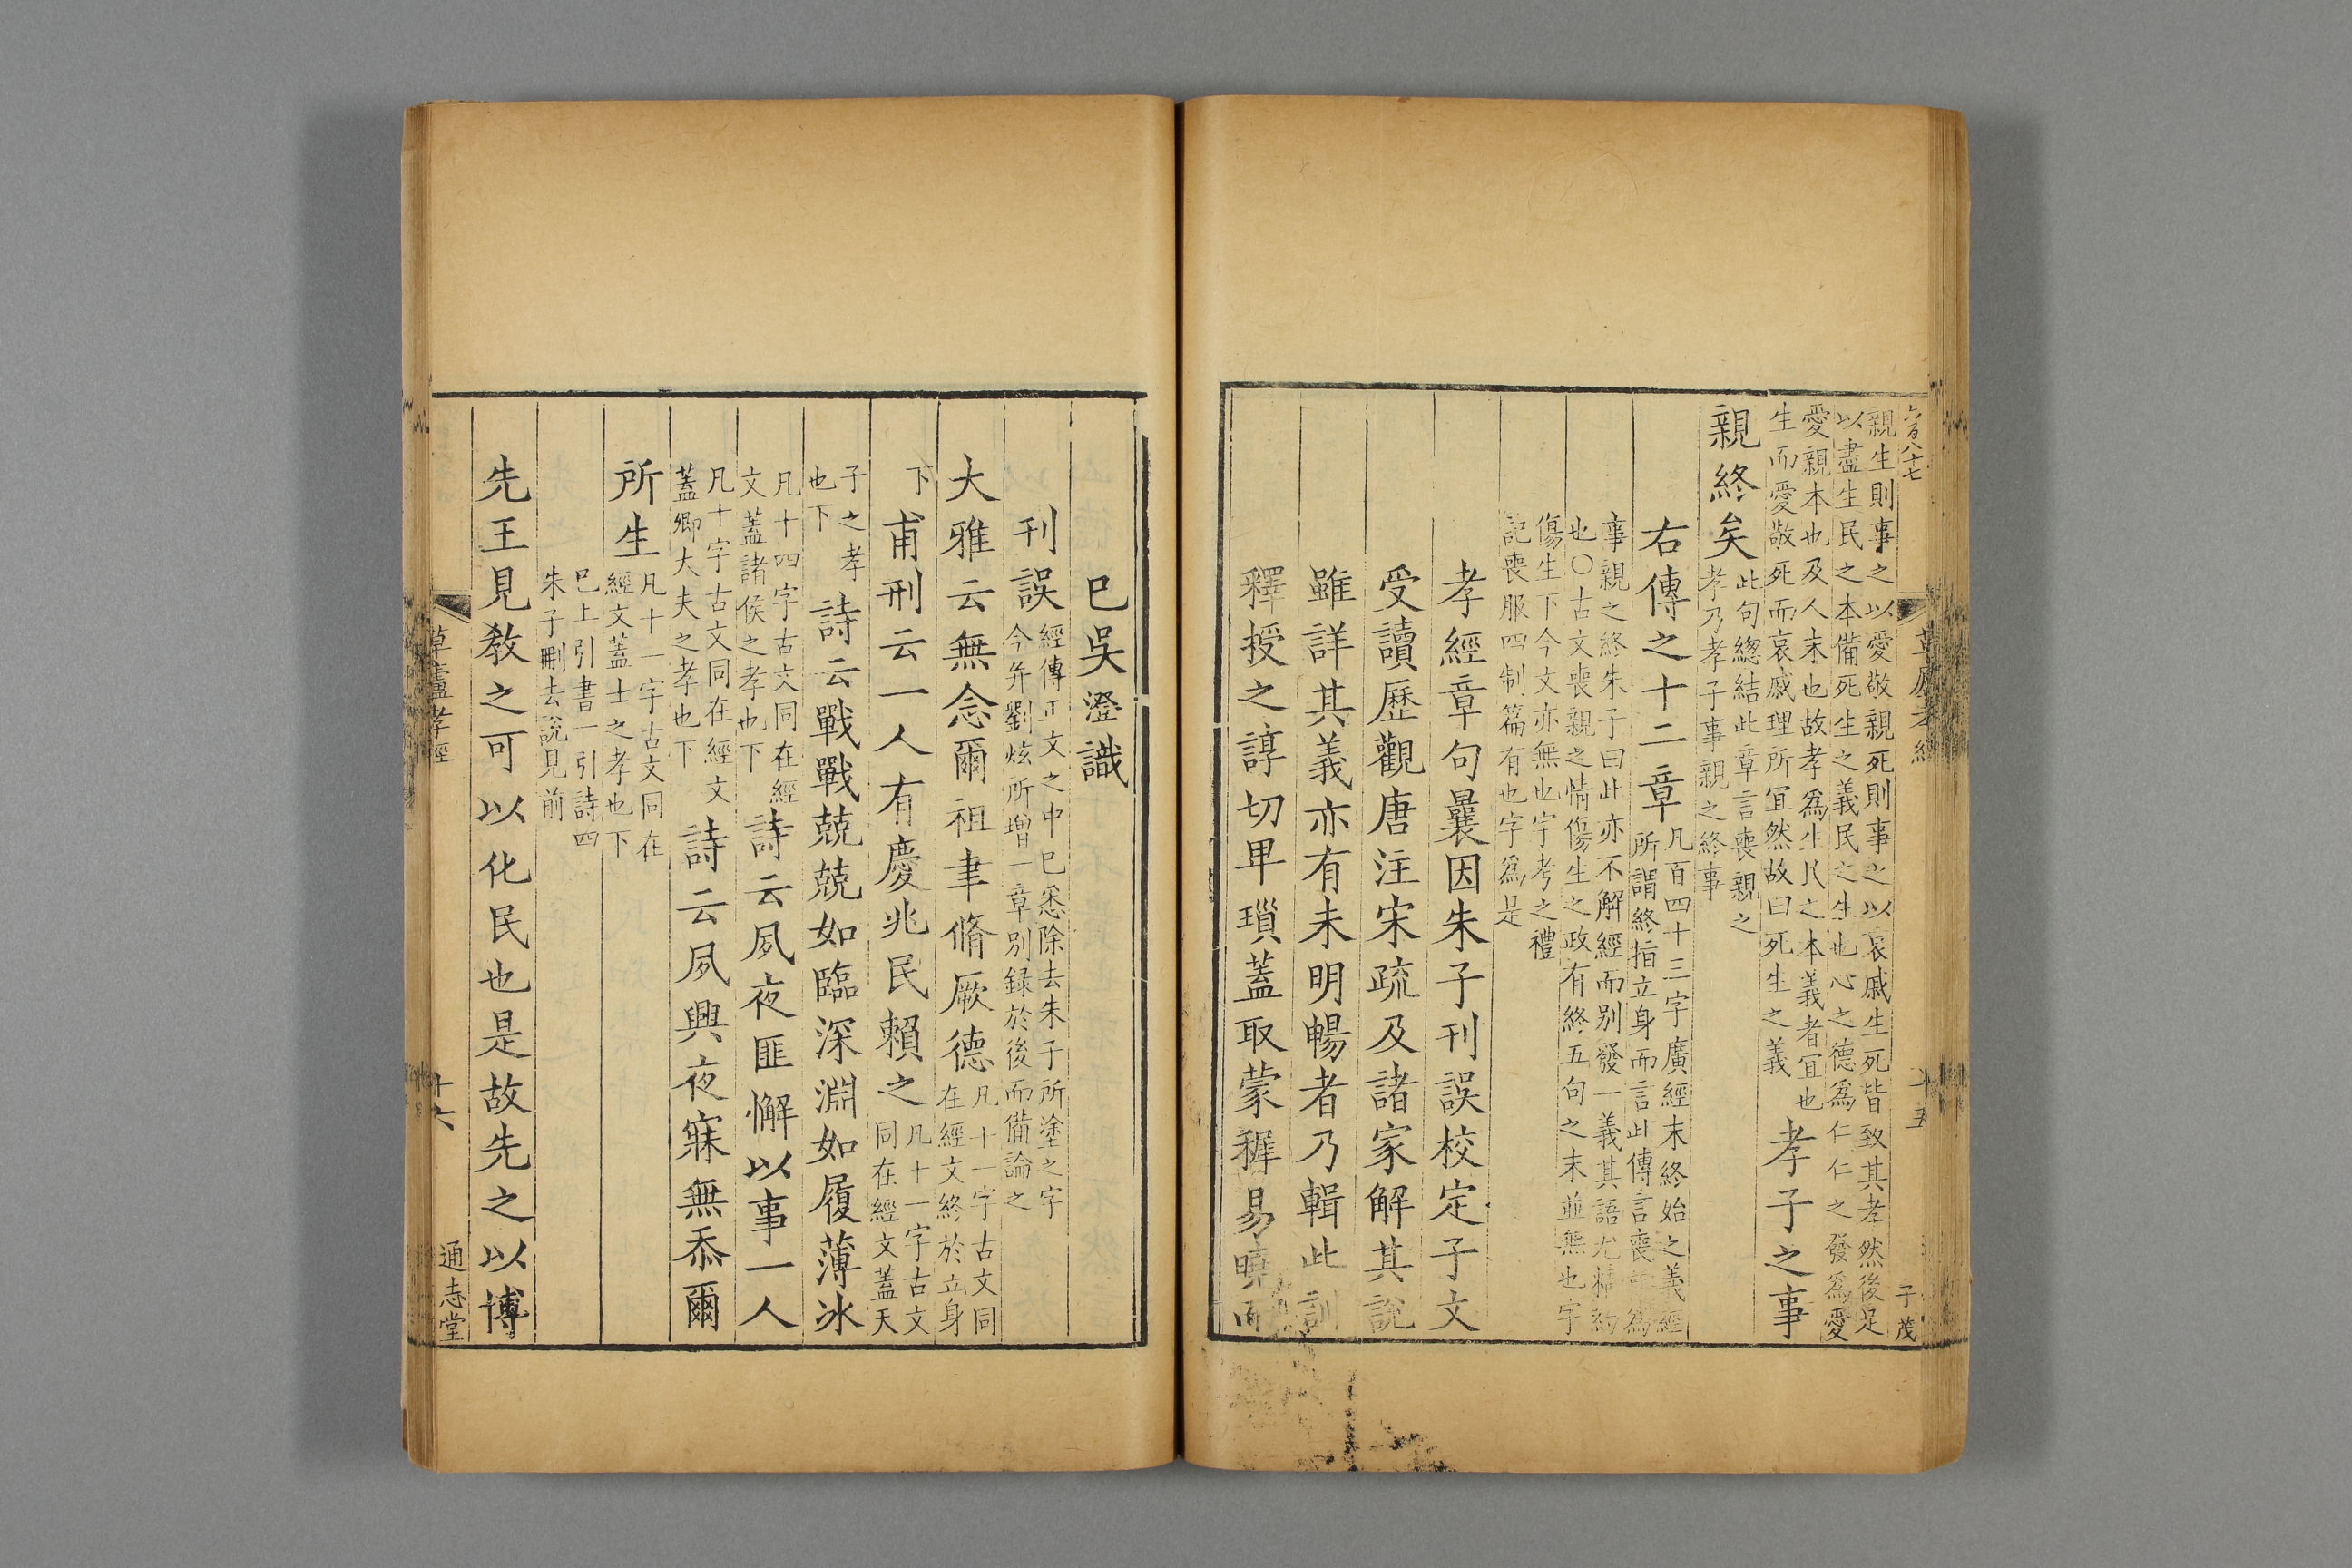 六百八十七
草廬孝經
十五
子茂
親生則事之以愛敬親死則事之以哀戚生死皆致其孝然後足
以盡生民之本備死生之義民之生也心之德爲仁仁之發爲愛
愛親本也及人末也故孝爲生民之本義者宜也
生而愛敬死而哀戚理所宜然故曰死生之義
孝子之事
親終矣
此句緫結此章言喪親之
孝乃孝子事親之終事
右傳之十二章
凡百四十三字廣經末終始之義經
所謂終指立身而言此傳言喪親爲
事親之終朱子曰此亦不解經而別發一義其語尤精約
也○古文喪親之情傷生之政有終五句之末並無也字
傷生下今文亦無也字考之禮
記喪服四制篇有也字爲是
孝經章句曩因朱子刊誤校定子文
受讀歷觀唐注宋疏及諸家解其說
雖詳其義亦有未明暢者乃輯此訓
釋授之諄切卑瑣蓋取蒙穉易曉而
已吳澄識
刊誤
經傳正文之中已悉除去朱子所塗之字
今并劉炫所增一章別録於後而備論之
大雅云無念爾祖聿脩厥德
凡十一字古文同
在經文終於立身
下
甫刑云一人有慶兆民賴之
凡十一字古文
同在經文蓋天
子之孝
也下
詩云戰戰兢兢如臨深淵如履薄冰
凡十四字古文同在經
文蓋諸侯之孝也下
詩云夙夜匪懈以事一人
凡十字古文同在經文
蓋卿大夫之孝也下
詩云夙興夜寐無忝爾
所生
凡十一字古文同在
經文蓋士之孝也下
已上引書一引詩四
朱子刪去說見前
先王見敎之可以化民也是故先之以博
草廬孝經
十六
通志堂